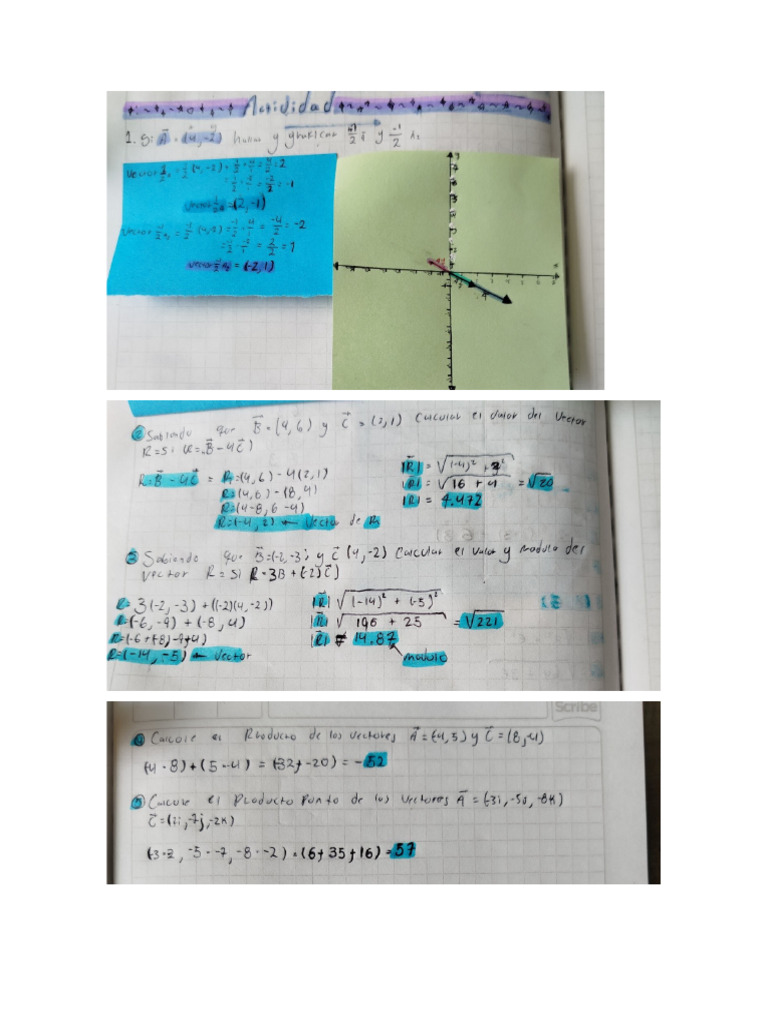 Actividad
1. Si A = (4, -2) hallar y graficar 1/2 A y -1/2 A
Vector 1/2 A = 1/2 (4, -2) = 1/2 · 4/1 = 4/2 = 2
= 1/2 · -2/1 = -2/2 = -1
Vector 1/2 A = (2, -1)
Vector -1/2 A = -1/2 (4, -2) = -1/2 · 4/1 = -4/2 = -2
= -1/2 · -2/1 = 2/2 = 1
Vector -1/2 A = (-2, 1)
② Sabiendo que B = (4, 6) y C = (2, 1) Calcular el valor del vector
R = Si (R = B - 4C)
R = B - 4C = R = (4, 6) - 4(2, 1)
R = (4, 6) - (8, 4)
R = (4-8, 6-4)
R = (-4, 2) ← Vector de R
|R| = √(-4)² + 2²
|R| = √16 + 4 = √20
|R| = 4.472
③ Sabiendo que B = (-2, -3) y C (4, -2) Calcular el valor y modulo del
vector R = Si R = 3B + (-2)C)
R = 3(-2, -3) + ((-2)(4, -2))
R = (-6, -9) + (-8, 4)
R = (-6 + (-8), -9 + 4)
R = (-14, -5) ← Vector
|R| √(-14)² + (-5)²
|R| √196 + 25 = √221
|R| = 14.87
modulo
Scribe
④ Calcule el Producto de los vectores A = (-4, 5) y C = (8, -4)
(-4 · 8) + (5 · -4) = (-32 + -20) = -52
⑤ Calcule el Producto Punto de los vectores A = (-3i, -5j, -8k)
C = (-2i, -7j, -2k)
(-3 · -2, -5 · -7, -8 · -2) = (6 + 35 + 16) = 57